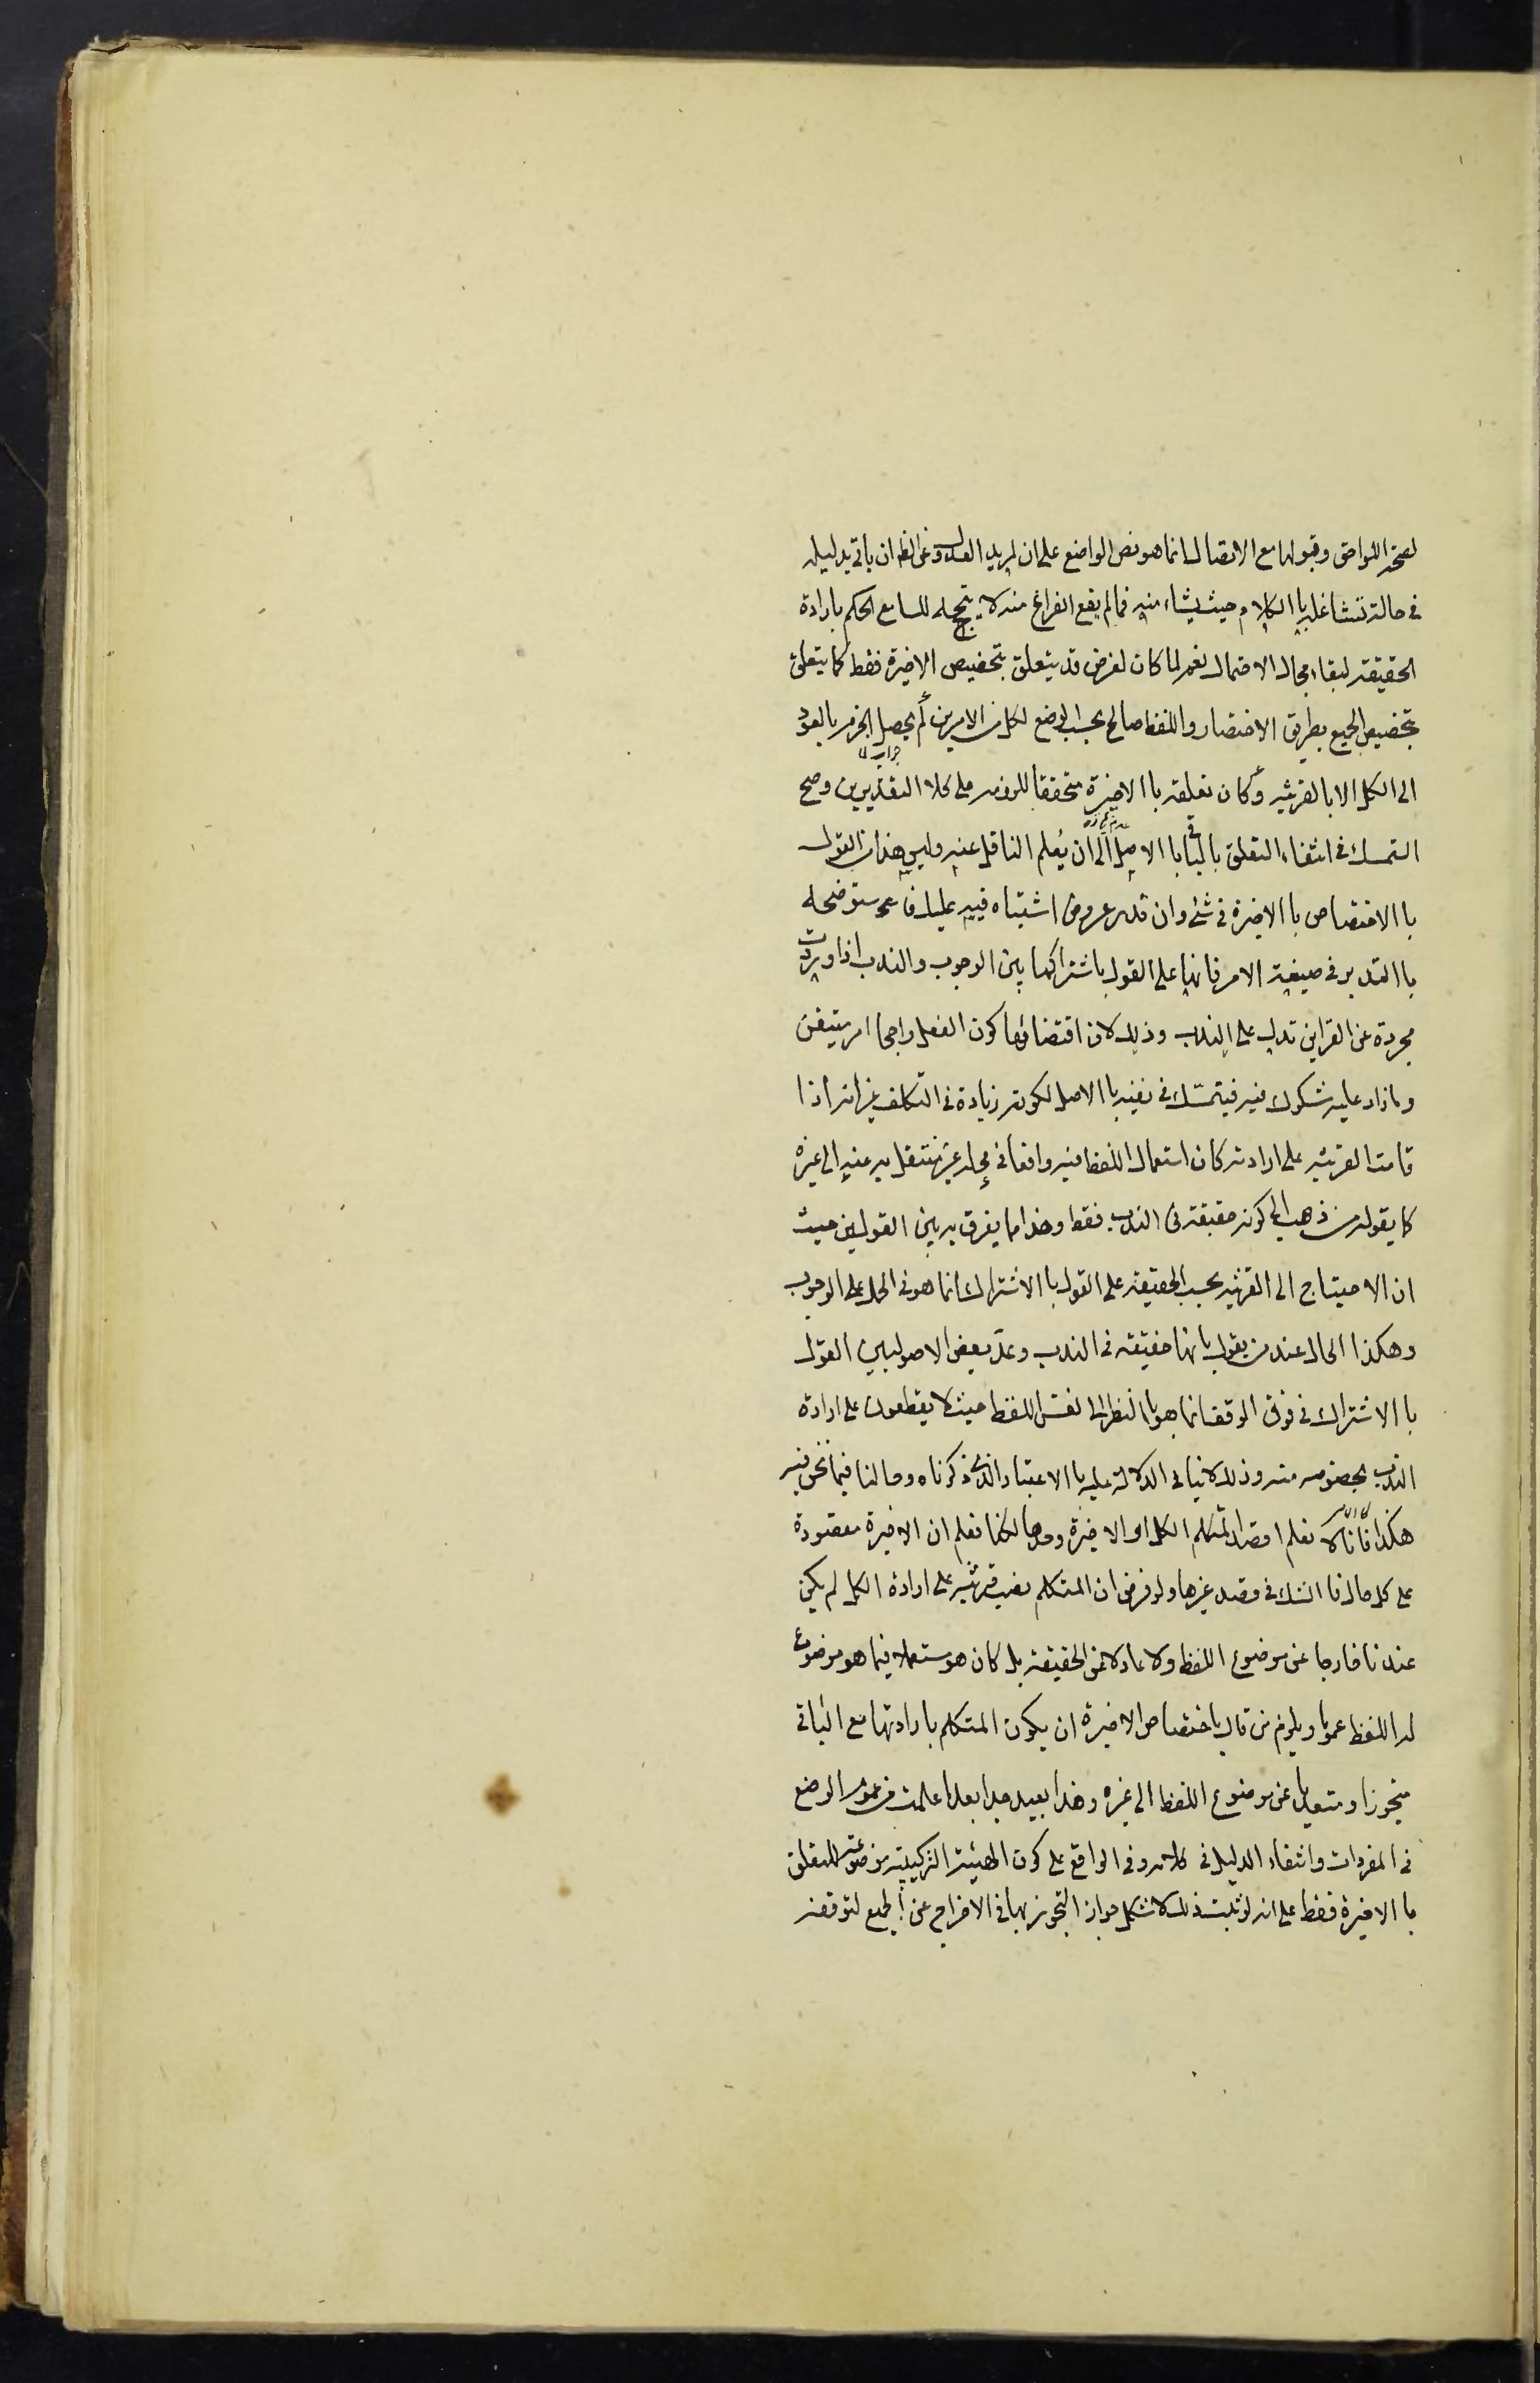 لصحة اللواحق وقبولها مع الاتصال انما هو نص الواضع على ان لمريد العدول عن الظ ان ياتى بدليله
فى حالة تشاغله با الكلام حيث يشاء منه فما لم يقع الفراغ منه لا يتجه للسامع الحكم بارادة
الحقيقة لبقاء مجال الاحتمال نعم لما كان لغرض قد يتعلق بتخصيص الاخيرة فقط كما يتعلق
بتخصيص الجميع بطريق الاختصار واللفظ صالح بحسب الوضع لكل من الامرين لم يحصل الجزم بالعود
الى الكل الا بالقرينه وكان تعلقه با الاخيرة متحققا للزومه على كلا التقديرين وصح
التمسك فى انتفاء التعلق بالباقى با الاصل الى ان يُعلم الناقل عنه وليس هذا من القول
با الاختصاص با الاخيرة فى شئ وان قدر عروض اشتباه فيه عليك فاستوضحه
با التدبر فى صيغة الامر فانها على القول باشتراكها بين الوجوب والندب اذا وردت
مجردة عن القراين تدل على الندب وذلك لان اقتضائها كون الفعل راجحا امر متيقن
وما زاد عليه مشكوك فيه فيتمسّك فى نفيه با الاصل لكونه زيادة فى التكليف غير انه اذا
قامت القرينه على ارادته كان استعمال اللفظ فيه واقعا فى محله غير منتقل به عنه الى غيره
كما يقوله من ذهب الى كونه حقيقة فى الندب فقط وهذا مما يفرق به بين القولين حيث
ان الاحتياج الى القرينه بحسب الحقيقة على القول با الاشتراك انما هو فى الحمل على الوجوب
وهكذا الحال عند من يقول بانها حقيقة فى الندب وعدّ بعض الاصوليين القول
با الاشتراك فى فرق الوقف انما هو با النظر الى نفس اللفظ حيث لا يقطعون على ارادة
الندب بخصوصه منه وذلك لا ينافى الدلالة عليه با الاعتبار الذى ذكرناه وحالنا فيما نحن فيه
هكذا فانا لا نعلم اقصد المتكلم الكل او الاخيرة وحدها لكنا نعلم ان الاخيرة مقصودة
على كل حال فا الشك فى قصد غيرها ولو فرض ان المتكلم نصب قرينه على ارادة الكل لم يكن
عندنا خارجا عن موضوع اللفظ ولا عادلا عن الحقيقة بل كان هو مستعملا فيما هو موضوع
له اللفظ عموما ويلزم من قال باختصاص الاخيرة ان يكون المتكلم بارادتها مع الباقى
متجوزا ومتعديا عن موضوع اللفظ الى غيره وهذا بعيد جدا بعد ما علمت من عموم الوضع
فى المفردات وانتفاء الدليل فى كلامهم وفى الواقع على كون الهيئة التركيبية موضوعة للتعلق
با الاخيرة فقط على انه لو ثبت ذلك لاشكل جواز التجوز بها فى الاخراج عن الجميع لتوقفه